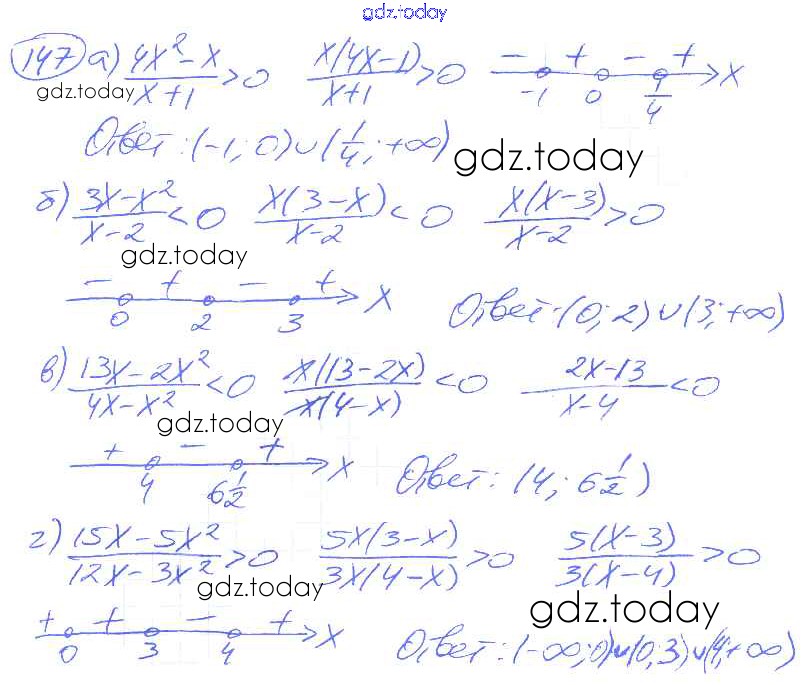 gdz.today
147 а) (4x² - x)/(x + 1) > 0   x(4x - 1)/(x + 1) > 0   - + - + x
gdz.today   -1 0 1/4
Ответ: (-1; 0) ∪ (1/4; +∞)
gdz.today
б) (3x - x²)/(x - 2) < 0   x(3 - x)/(x - 2) < 0   x(x - 3)/(x - 2) > 0
gdz.today
- + - + x
0 2 3   Ответ: (0; 2) ∪ (3; +∞)
в) (13x - 2x²)/(4x - x²) < 0   x(13 - 2x)/x(4 - x) < 0   (2x - 13)/(x - 4) < 0
gdz.today
+ - + x
4 6 1/2   Ответ: (4; 6 1/2)
г) (15x - 5x²)/(12x - 3x²) > 0   5x(3 - x)/3x(4 - x) > 0   5(x - 3)/3(x - 4) > 0
gdz.today
gdz.today
+ + - + x
0 3 4   Ответ: (-∞; 0) ∪ (0; 3) ∪ (4; +∞)